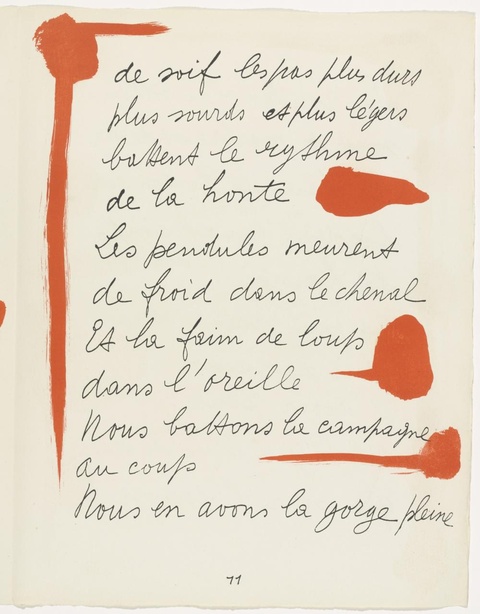 de soif les pas plus durs
plus sourds et plus légers
battent le rythme
de la honte
Les pendules meurent
de froid dans le chenal
Et la faim de loup
dans l'oreille
Nous battons la campagne
au coup
Nous en avons la gorge pleine
77